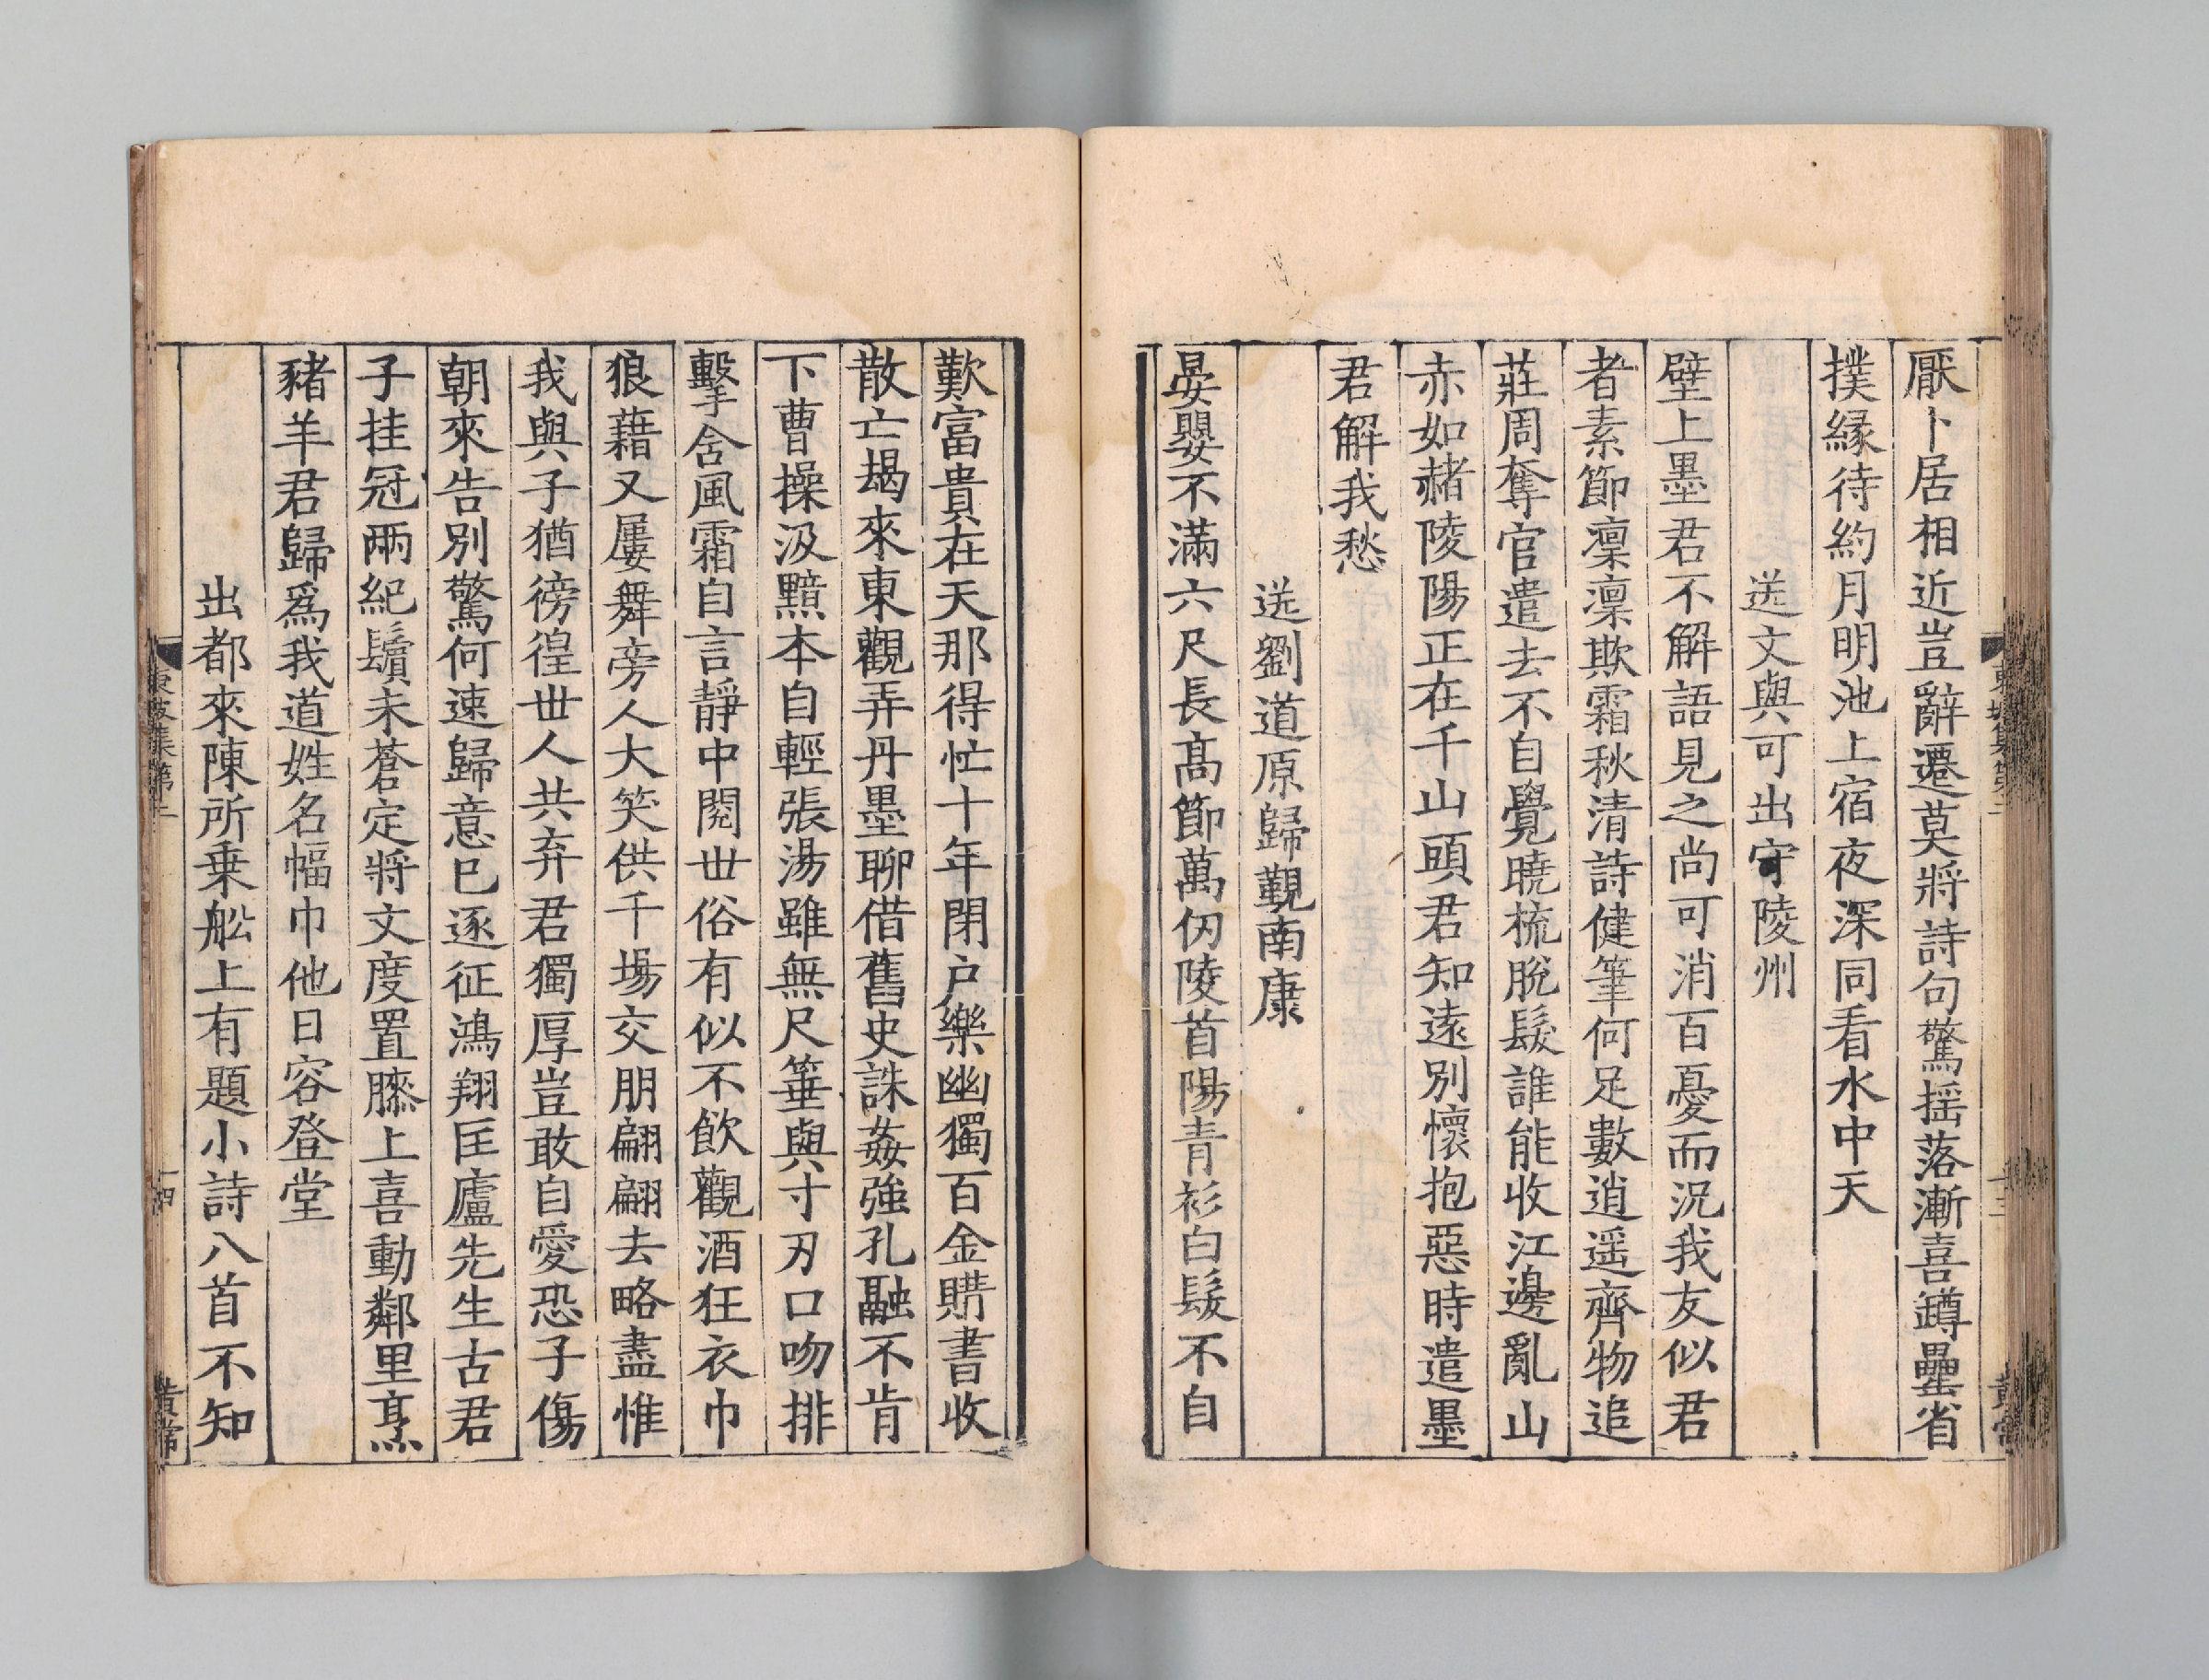 厭卜居相近豈辭遷莫將詩句驚揺落漸喜罇罍省
撲縁待約月明池上宿夜深同看水中天
送文與可出守陵州
壁上墨君不解語見之尚可消百憂而況我友似君
者素節凛凛欺霜秋清詩健筆何足數逍遥齊物追
莊周奪官遣去不自覺曉梳脫髮誰能收江邊亂山
赤如赭陵陽正在千山頭君知遠別懷抱惡時遣墨
君解我愁
送劉道原歸覲南康
晏嬰不滿六尺長髙節萬仞陵首陽青衫白髮不自
歎富貴在天那得忙十年閉户樂幽獨百金購書收
散亡朅來東觀弄丹墨聊借舊史誅姦強孔融不肯
下曹操汲黯本自輕張湯雖無尺箠與寸刃口吻排
擊含風霜自言靜中閱世俗有似不飲觀酒狂衣巾
狼藉又屢舞旁人大笑供千場交朋翩翩去略盡惟
我與子猶徬徨世人共弃君獨厚豈敢自愛恐子傷
朝來告別驚何速歸意已逐征鴻翔匡廬先生古君
子挂冠兩紀鬢未蒼定將文度置膝上喜動鄰里烹
豬羊君歸爲我道姓名幅巾他日容登堂
出都來陳所乗船上有題小詩八首不知
東坡集第二
十四
黄常